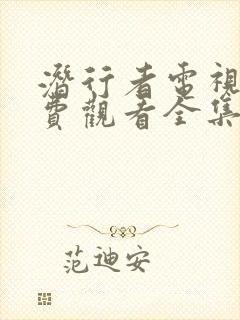 潛行者電視
費觀看全集
范迪安